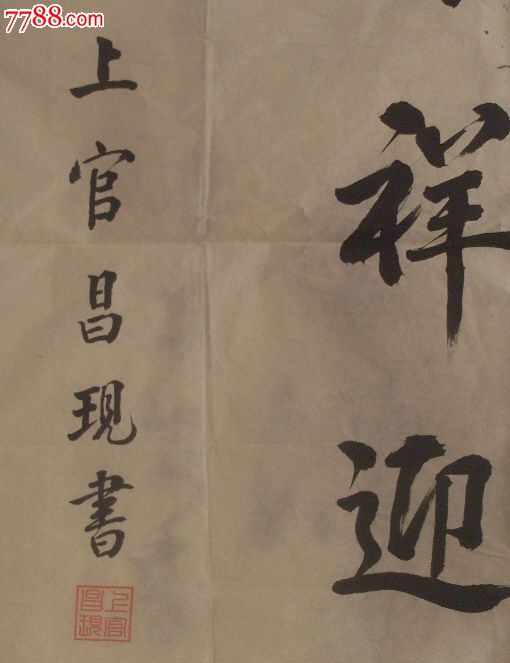 7788.com
祥迎
上官昌现書
上官
昌现